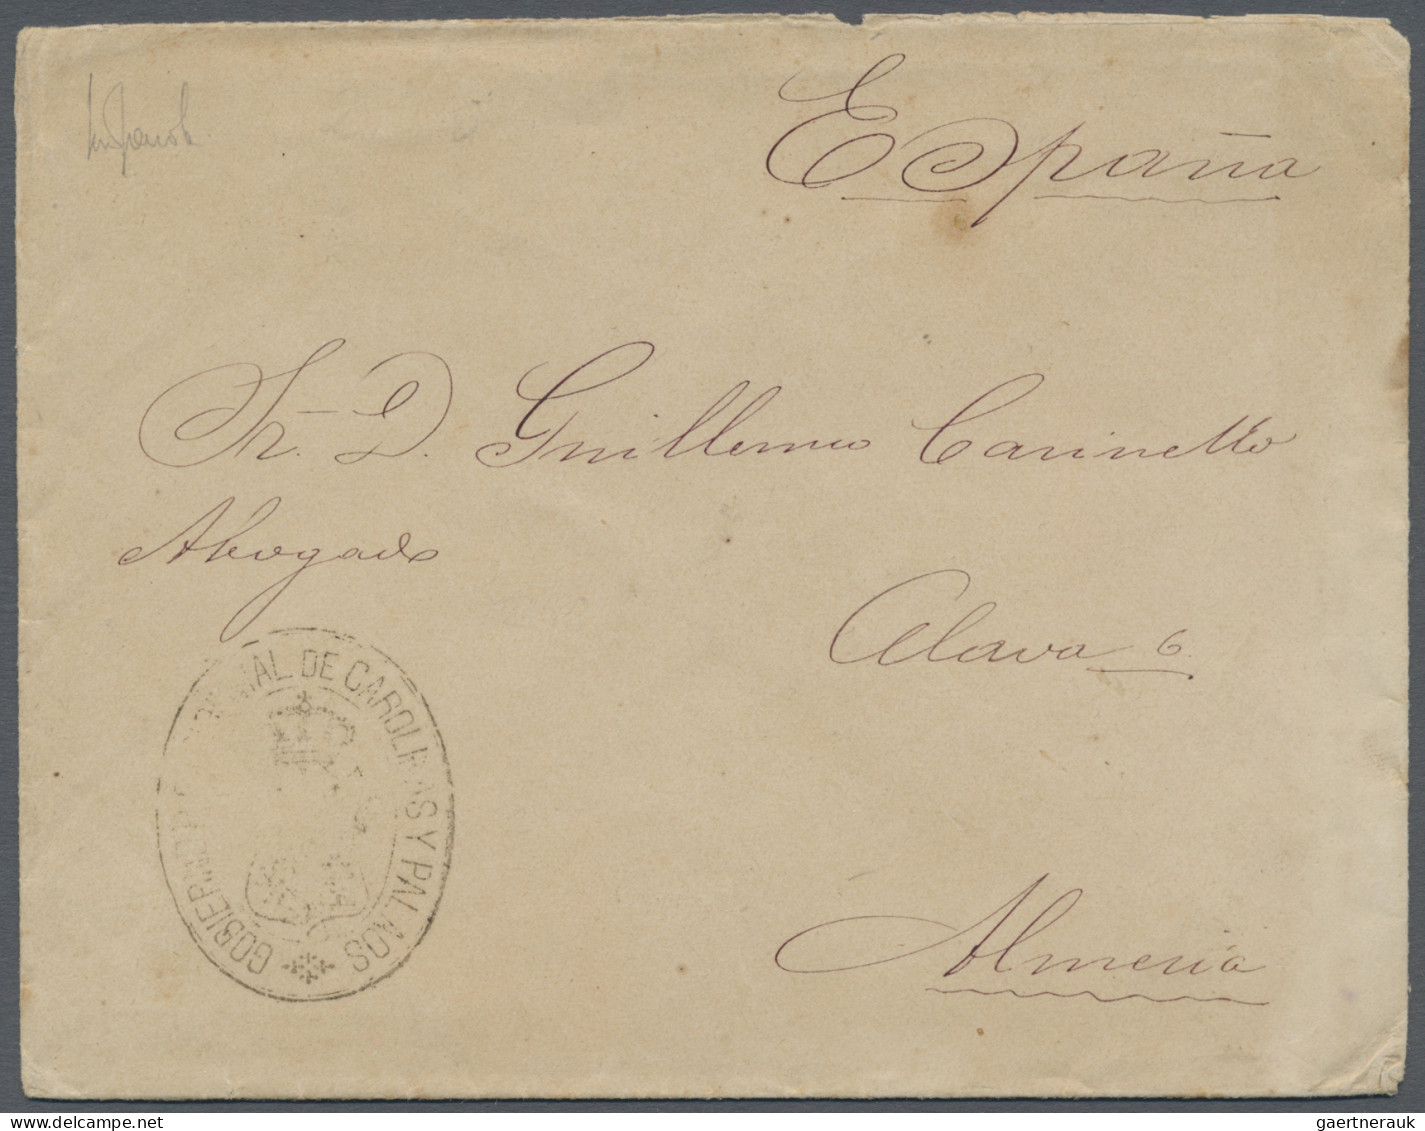 España
Sr. D. Guillermo Carinetto
Abogado
Alava 6.
Almeria
GOBIERNO DE CAROLINAS Y PALAOS
gaertnerauk